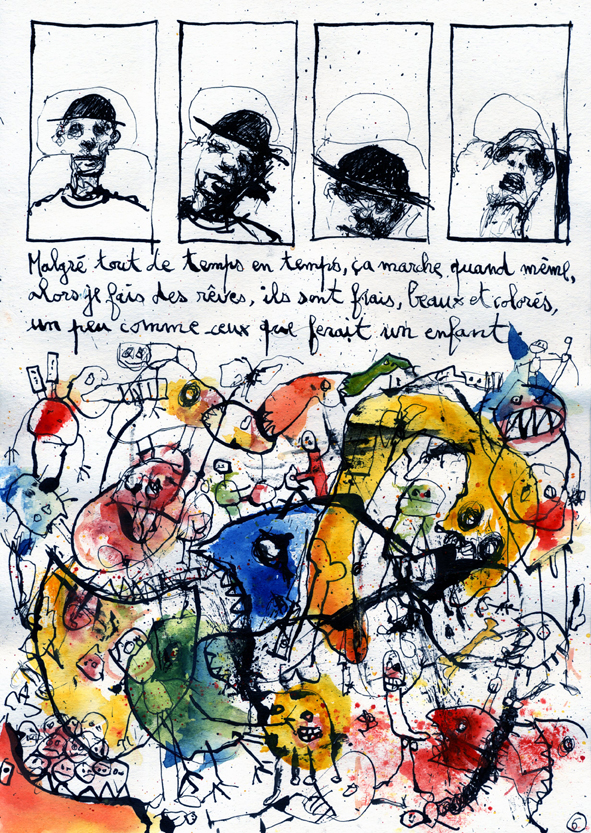 Malgré tout de temps en temps, ça marche quand même,
alors je fais des rêves, ils sont frais, beaux et colorés,
un peu comme ceux que ferait un enfant
6